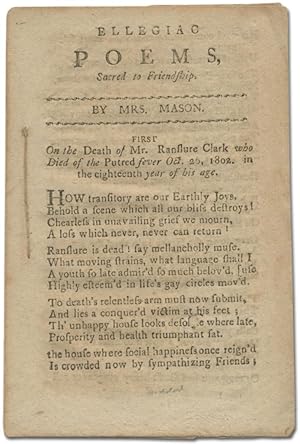 ELLEGIAC
POEMS,
Sacred to Friendship.
BY MRS. MASON.
FIRST
On the Death of Mr. Ranslure Clark who
Died of the Putred fever Oct. 26, 1802. in
the eighteenth year of his age.
HOW transitory are our Earthly Joys.
Behold a scene which all our bliss destroys!
Chearless in unavailing grief we mourn,
A loss which never, never can return!
Ranslure is dead! say mellancholly muse.
What moving strains, what language shall I
A youth so late admir'd so much belov'd, [use
Highly esteem'd in life's gay circles mov'd.
To death's relentless arm must now submit,
And lies a conquer'd victim at his feet;
Th' unhappy house looks where late,
Prosperity and health triumphant sat.
the house where social happiness once reign'd
Is crowded now by sympathizing Friends;